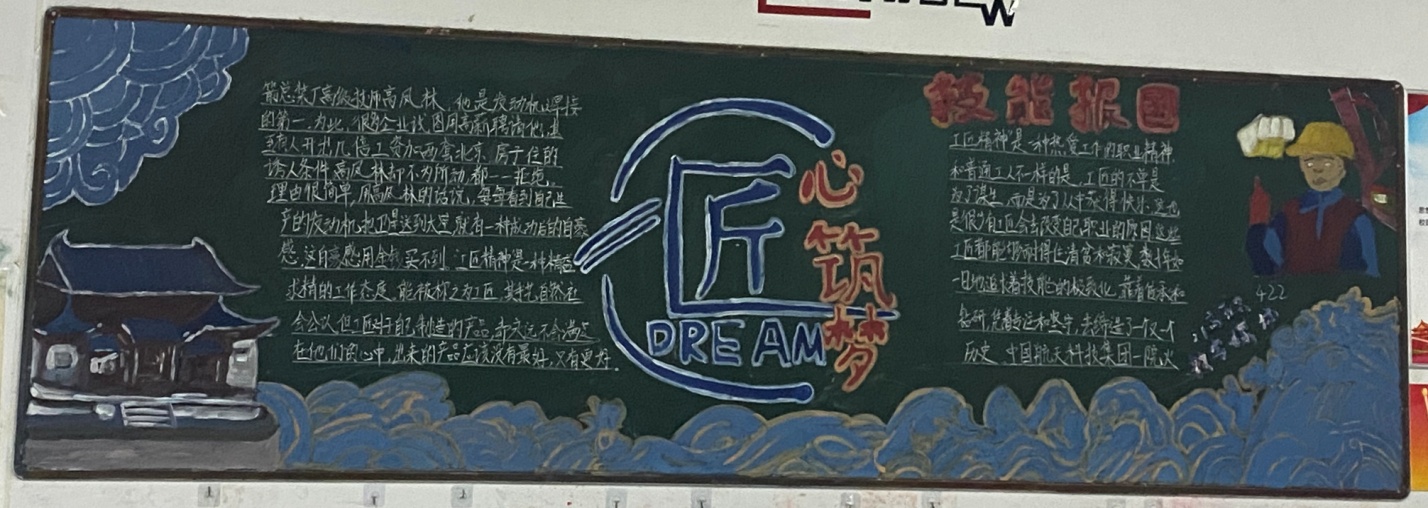 箭总装厂高级技师高凤林,他是发动机焊接
的第一人,为此,很多企业试图用高薪聘请他,甚
至有人开出几倍工资加两套北京房子的
诱人条件,高凤林却不为所动,都一一拒绝。
理由很简单,用高凤林的话说,每每看到自己生
产的发动机把卫星送到太空,就有一种成功后的自豪
感,这种自豪感用金钱买不到,工匠精神是一种精益
求精的工作态度,能被称之为工匠,其手艺自然社
会公认,但工匠对于自己制造的产品,却永远不会满足
在他们的心中,出来的产品应该没有最好,只有更好。
匠
心
筑
梦
DREAM
技能报国
工匠精神是一种热爱工作的职业精神,
和普通工人不一样的是,工匠的不单是
为了谋生,而是为了从中获得快乐,这也
是很少有工匠会去改变自己职业的原因,这些
工匠都能够耐得住清贫和寂寞,数十年如
一日地追求着技能的极致化,靠着传承和
钻研,凭着专注和坚守,去缔造了一个又一个
历史,中国航天科技集团一院火
422